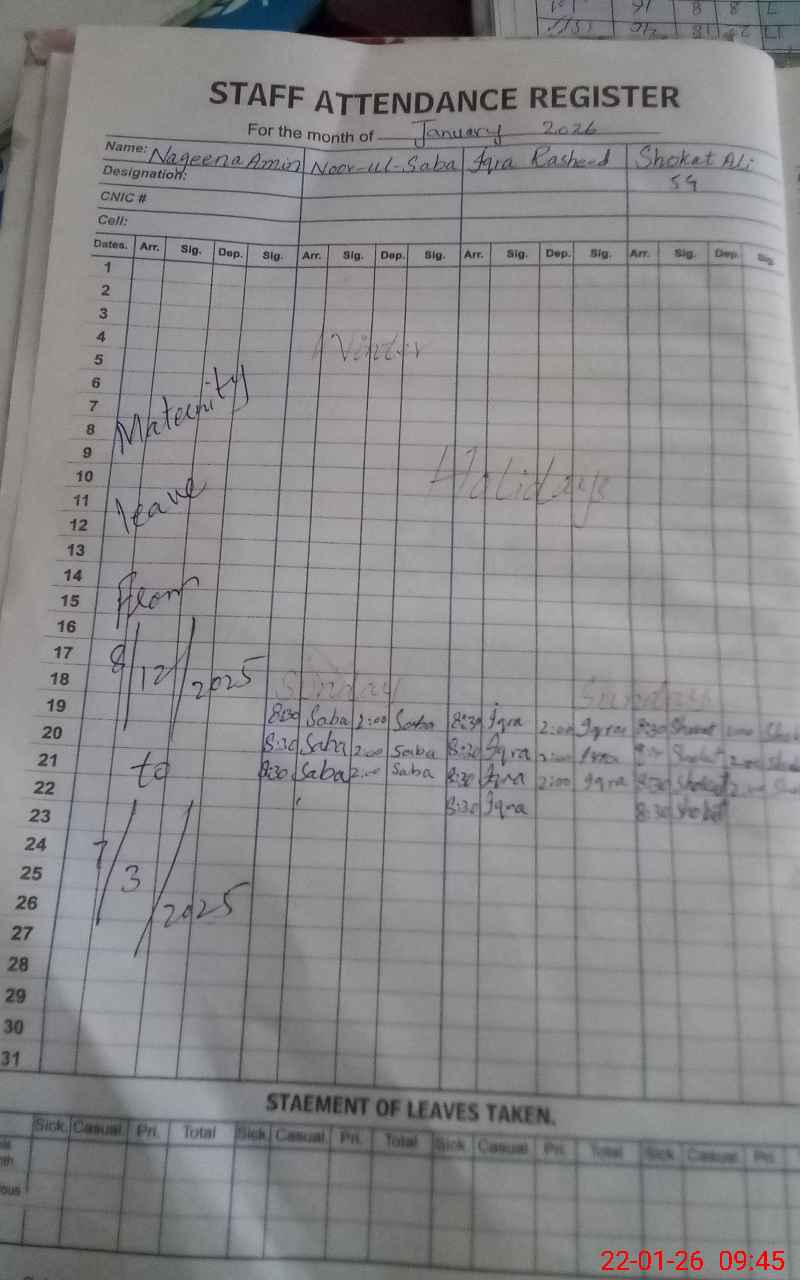 STAFF ATTENDANCE REGISTER
For the month of January 2026
Name: Nageena Amin Noor-ul-Saba Iqra Rasheed Shokat Ali
Designation: SG
CNIC #
Cell:
Dates. Arr. Sig. Dep. Sig. Arr. Sig. Dep. Sig. Arr. Sig. Dep. Sig. Arr. Sig. Dep. Sig.
1
2
3
4
5 Winter
6
7
8 Maternity
9
10 Holidays
11 leave
12
13
14
15 from
16
17
18 8/12/2025 Sunday Sunday
19 8:30 Saba 2:00 Saba 8:30 Iqra 2:00 Iqra 8:30 Shokat 2:00
20 8:30 Saba 2:00 Saba 8:30 Iqra 2:00 Iqra Shokat 2:00
21 to 8:30 Saba 2:00 Saba 8:30 Iqra 2:00 Iqra 8:30 Shokat 2:00
22 8:30 Iqra 8:30 Shokat
23
24
25 7/3/2025
26
27
28
29
30
31
STAEMENT OF LEAVES TAKEN.
Sick. Casual. Pri. Total Sick. Casual. Pri. Total Sick. Casual Pri. Total Sick Casual. Pri.
22-01-26 09:45